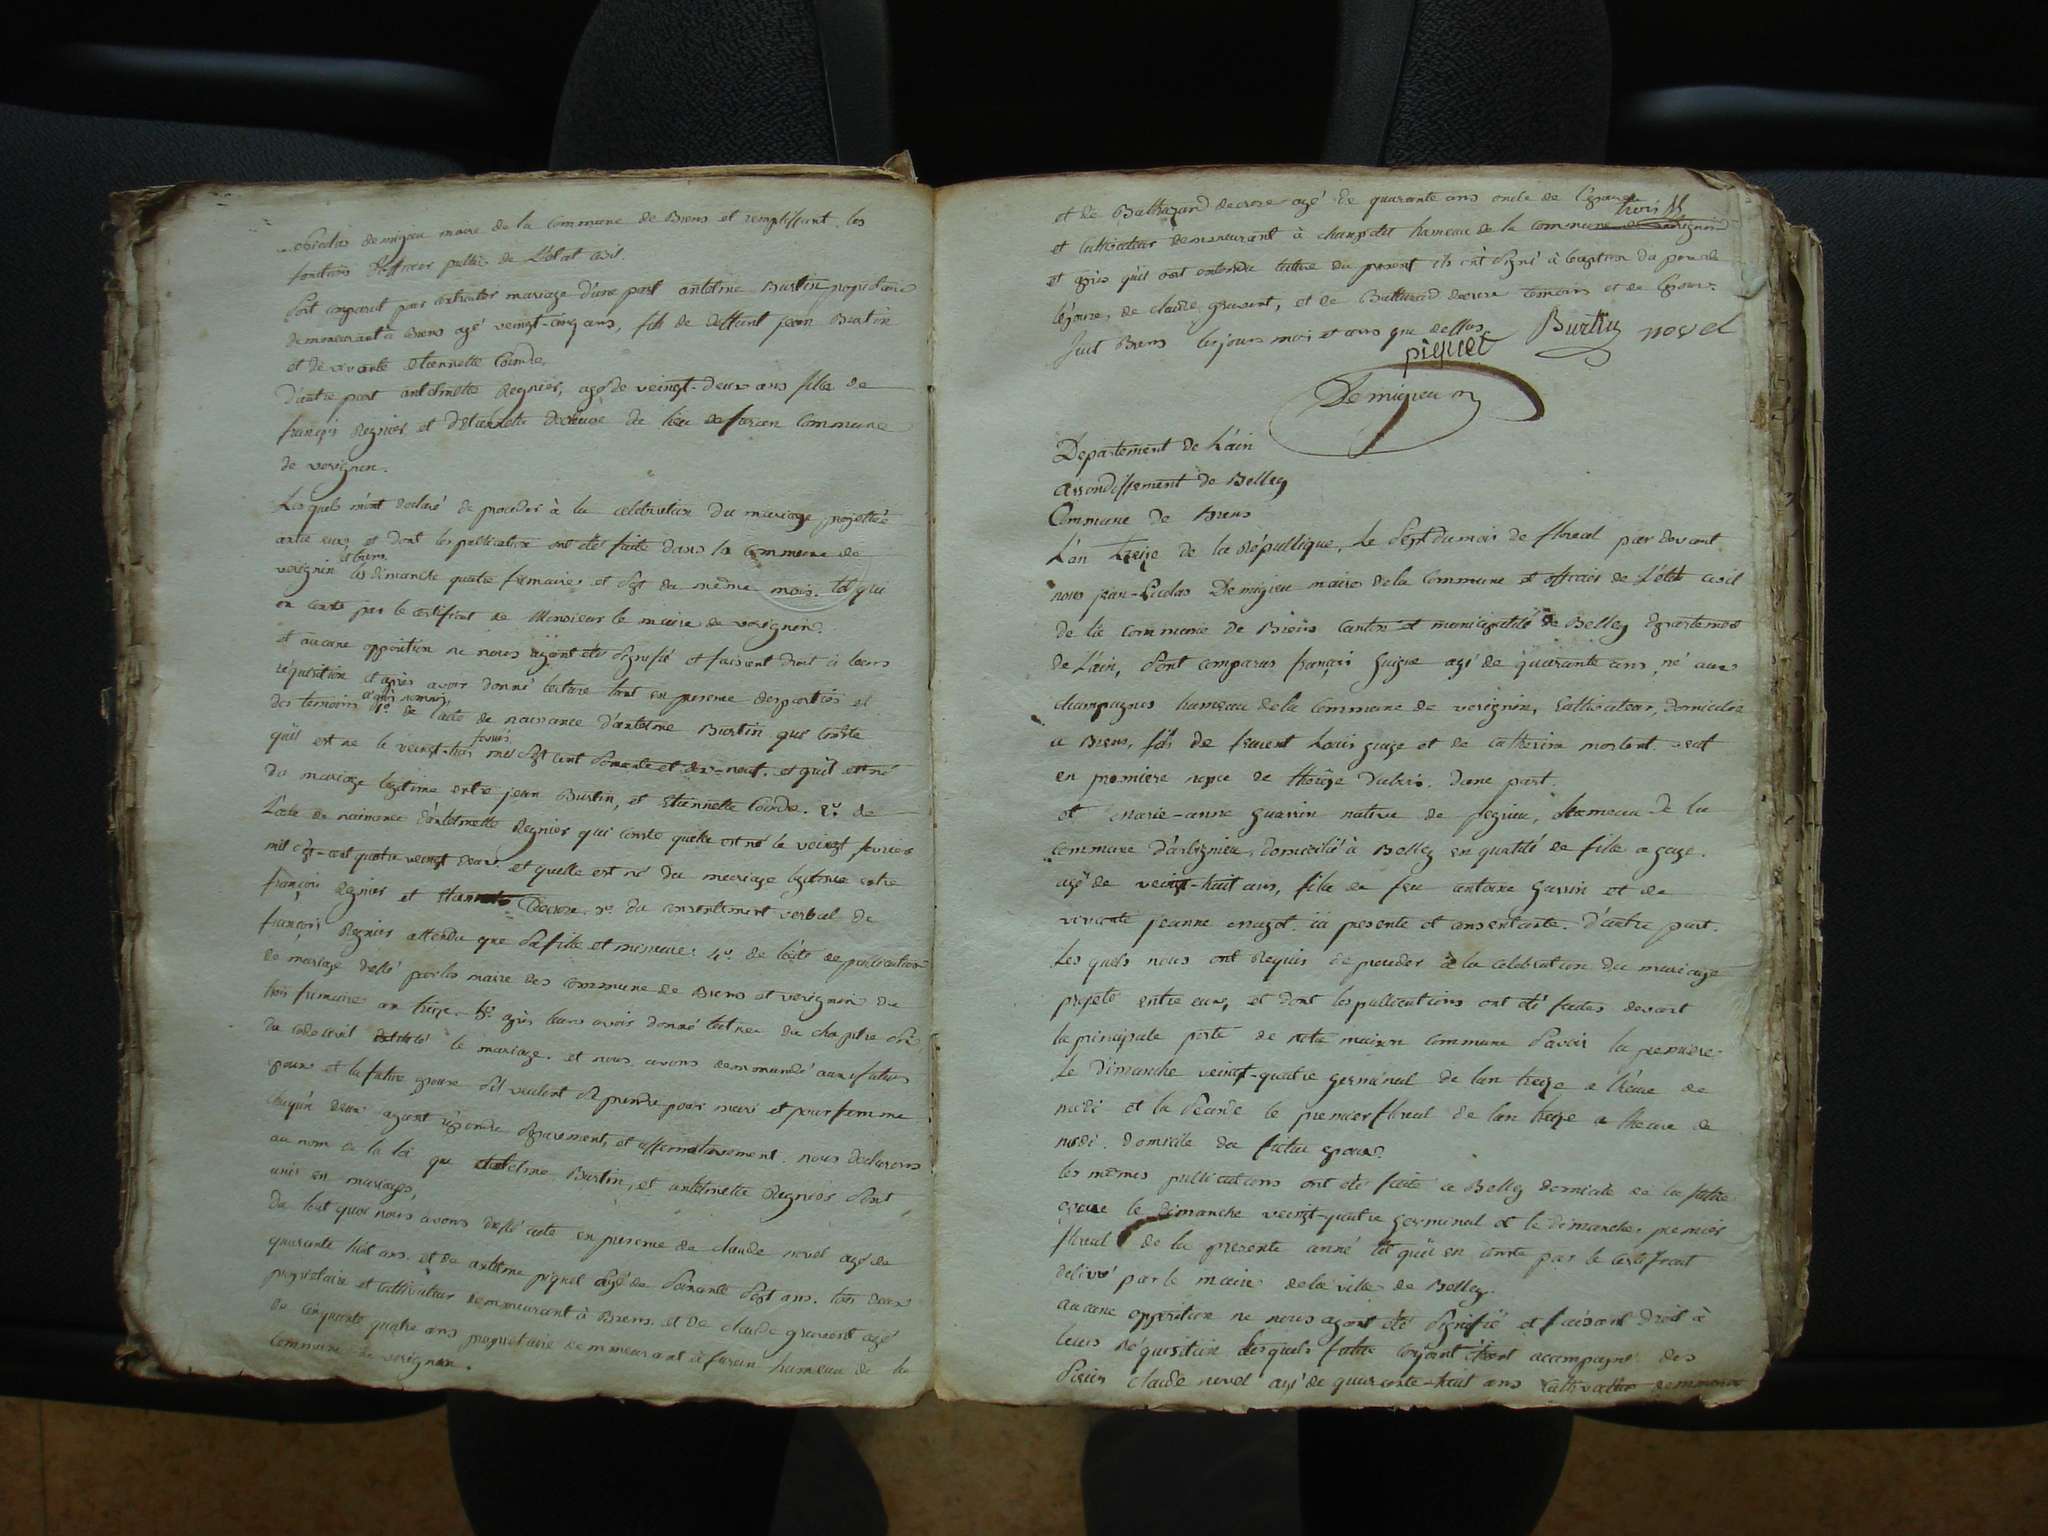 Nicolas demigieu maire de la Commune de Brens et remplissant les
fonctions d'officier public de L'état civil.
Sont comparut pour contracter mariage d'une part antelme Burtin propriétaire
demeurant à Brens agé veingt-cinq ans, fils de deffunt jean Burtin
et de vivante etiennette Coinde,
D'autre part antelmette Regnier, agé de veingt-deux ans fille de
françois Regnier et d'Etiennette Decroze du lieu de furan Commune
de verignin.
Les quels m'ont declaré de proceder à la celebration du mariage projetteé
entre eux, et dont les publication ont été faite dans la Commune de
verignin et brens les dimanche quatre frimaire et sept du même mois. tel qui
en conste par le certificat de Monsieur le maire de verignin.
et aucune opposition ne nous ayant été signifié et faisant droit à leurs
requisition et après avoir donné lecture tant en presence des parties et
des temoins 1º de l'acte de naissance d'antelme Burtin qui conste
qu'il est né le veingt-trois fevrier mil sept cent soixante et dix-neuf. et qu'il est né
du mariage legitime entre jean Burtin, et Etiennette Coinde. 2º de
L'acte de naissance d'antelmette Regnier qui conste quelle est né le veingt fevrier
mil sept-cent quatre veingt deux. et quelle est né du mariage legitime entre
françois Regnier et Decroze. 3º du consentement verbal de
françois Regnier attendu que sa fille et mineure. 4º. de l'acte de publication
de mariage delié par les maire des commune de Brens et verignin du
trois frimaire an treize. 5º après leurs avoir donné lecture du chapitre six
du code civil le mariage. et nous avons demmandé aux futurs
epoux et la future epouse s'il veulent se prendre pour mari et pour femme
chaqu'un deux ayant repondu separement et affirmativement. nous declarons
au nom de la loi que antelme Burtin, et antelmette Regnier sont
unis en mariage,
Du tout quoi nous avons dressé acte en presence de claude novel agé de
quarante huit ans. et de antelme piquet agé de soixante sept ans. tous deux
propriétaire et cultivateur demmeurant à Brens. et de claude gravent agé
de cinquante quatre ans propriétaire demmeurant à furan hameau de la
Commune de verignin.
et de Balthazard decroze agé de quarante ans oncle de l'épouse
et cultivateur demmeurant à champdet hameau de la commune de verignin
et après qu'il ont entendu lecture du present ils ont signé à l'exception du pere de
l'epouse, de claude gravent, et de Baltazard decroze temoins et de l'epouse.
fait Brens les jours mois et ans que dessus
piquet Burtin novel
Demigieu m
Departement de L'ain
arrondissement de Belley
Commune de Brens
L'an treize de la Républlique, Le sept du mois de floreal par devant
nous jean-Nicolas Demigieu maire de la Commune et officier de L'état civil
de la commune de Brens canton et municipalité de Belley departement
de L'ain, sont comparus françois guigue agé de quarante ans, né aux
champagnes hameau de la Commune de verignin, Cultivateur, domicilié
a Brens, fils de feuent Louis guige et de catherine mortent. veuf
en premiere noce de therèze Dubois. d'une part.
et marie-anne guarrin native de pegieu, hameau de la
commune d'arbignieu, domicilié à Belley en qualité de fille a gage.
agé de veingt-huit ans, fille de feu antoine garrin et de
vivante jeanne mugot. ici presente et consentante. d'autre part.
Les quels nous ont Requis de proceder à la celebration du mariage
projeté entre eux, et dont les publications ont été faites devant
la principale porte de notre maison commune savoir la premiere
Le dimanche veingt-quatre germinal de l'an treize a l'heure de
midi et la seconde le premier floreal de l'an treize a l'heure de
midi. domicile du futur epoux.
les mêmes publications ont été faite a Belley domicile de la future
epouse le dimanche veingt-quatre germinal et le dimanche premier
floreal de la presente anné tel qu'il en conste par le certificat
delivré par le maire de la ville de Belley.
aucune opposition ne nous ayant été signifié et faisant droit à
leurs réquisition lesquels futur conjoint étant acompagné des
sieurs claude novel agé de quarante-huit ans cultivateur demmeurant